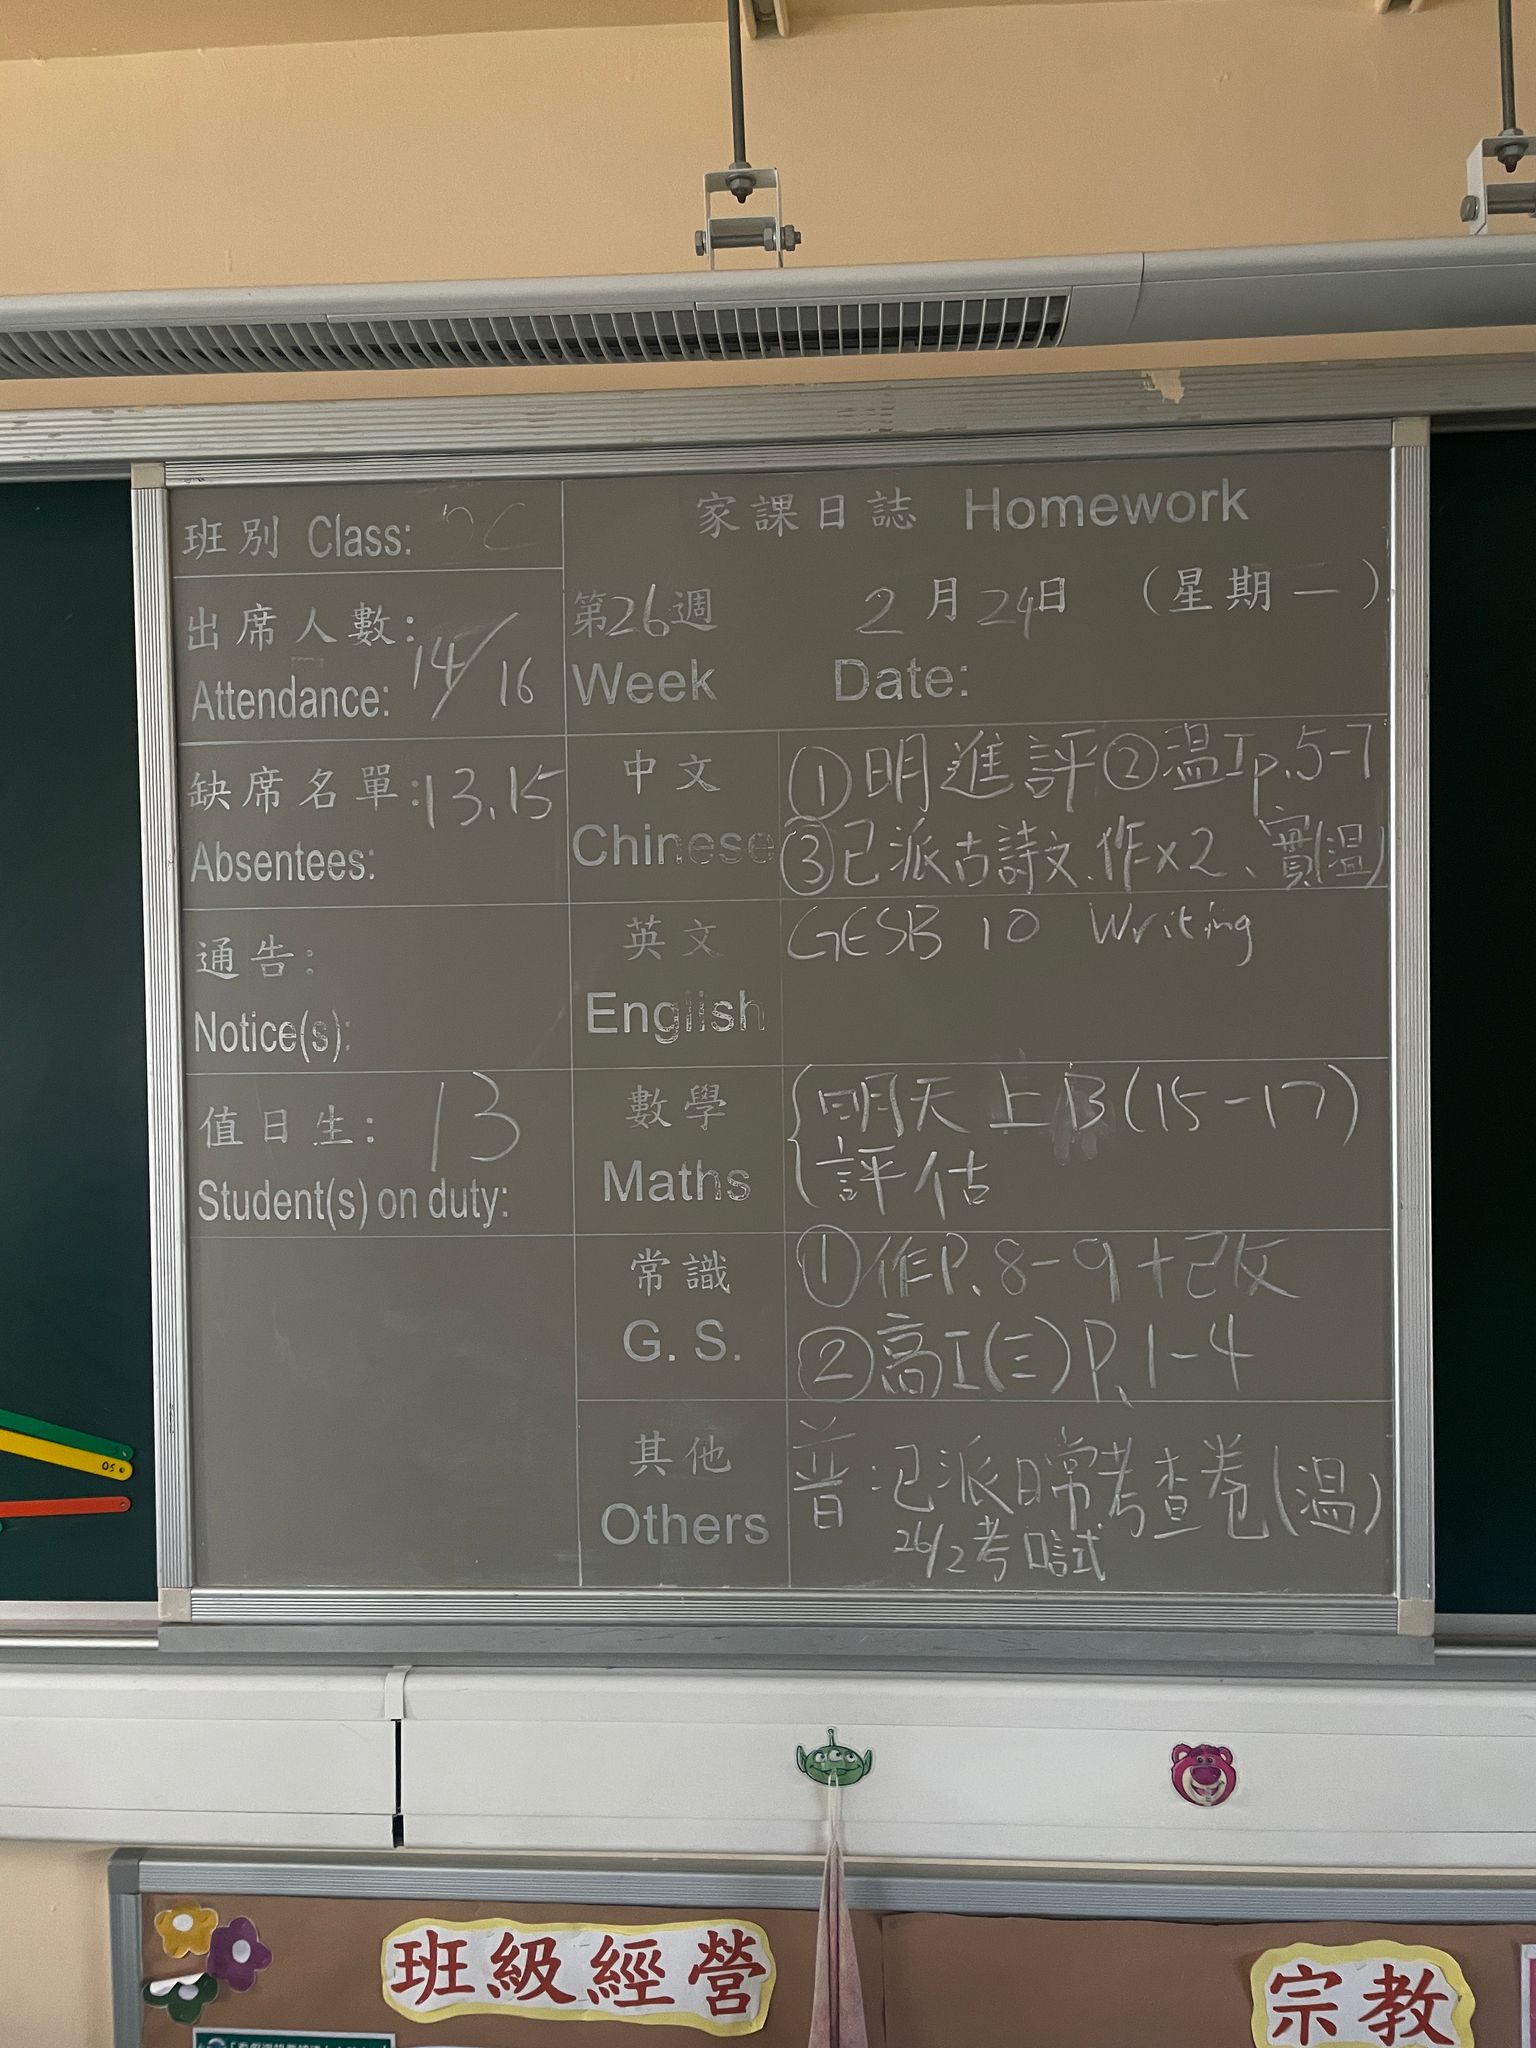 班別 Class: 2C
出席人數: 14/16
Attendance:
缺席名單: 13.15
Absentees:
通告:
Notice(s):
值日生: 13
Student(s) on duty:
家課日誌 Homework
第26週 2月24日 (星期一)
Week Date:
中文 ①明進評②溫工p.5-7
Chinese ③已派古詩文、作x2、實(溫)
英文 GESB 10 Writing
English
數學 明天上B(15-17)
Maths 評估
常識 ①作P.8-9+改
G. S. ②高工(三)P.1-4
其他 普:已派日常考查卷(溫)
Others 26/2考口試
05
班級經營
宗教